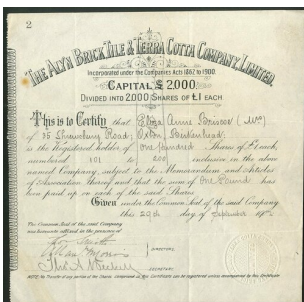 2
THE ALYN BRICK TILE & TERRA COTTA COMPANY, LIMITED.
Incorporated under the Companies Acts 1862 to 1900.
CAPITAL £2,000.
DIVIDED INTO 2,000 SHARES OF £1 EACH
This is to Certify that Eliza Anne Briscoe (Mrs)
of 35 Shrewsbury Road, Oxton, Birkenhead,
is the Registered holder of One hundred Shares of £1 each,
numbered 101 to 200 inclusive in the above
named Company, subject to the Memorandum and Articles
of Association thereof and that the sum of One Pound has
been paid up on each of the said Shares
Given under the Common Seal of the said Company
this 29th day of September
The Common Seal of the said Company
was hereunto affixed in the presence of
DIRECTORS.
SECRETARY.
NOTE: No Transfer of any portion of the Shares comprised in this Certificate can be registered unless accompanied by this Certificate